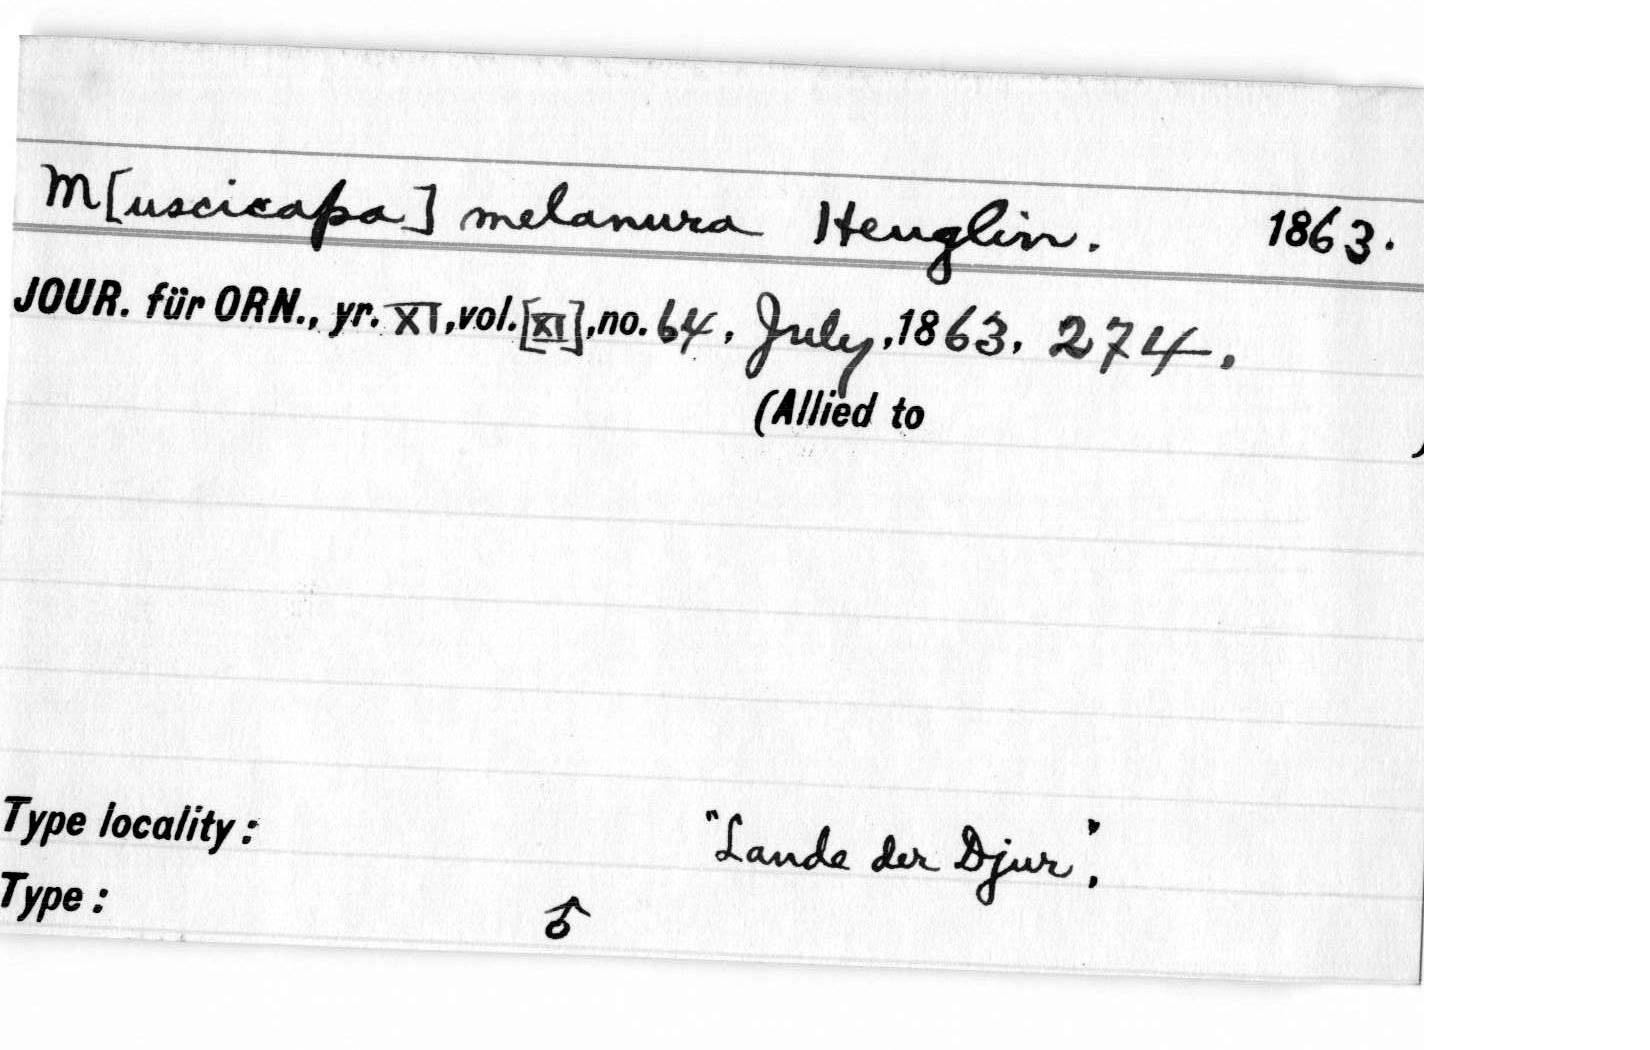 M[uscicapa] melanura Heuglin. 1863.
JOUR. für ORN., yr. XI, vol. [XI], no. 64, July, 1863, 274.
(Allied to )
Type locality: "Lande der Djur",
Type: ♂